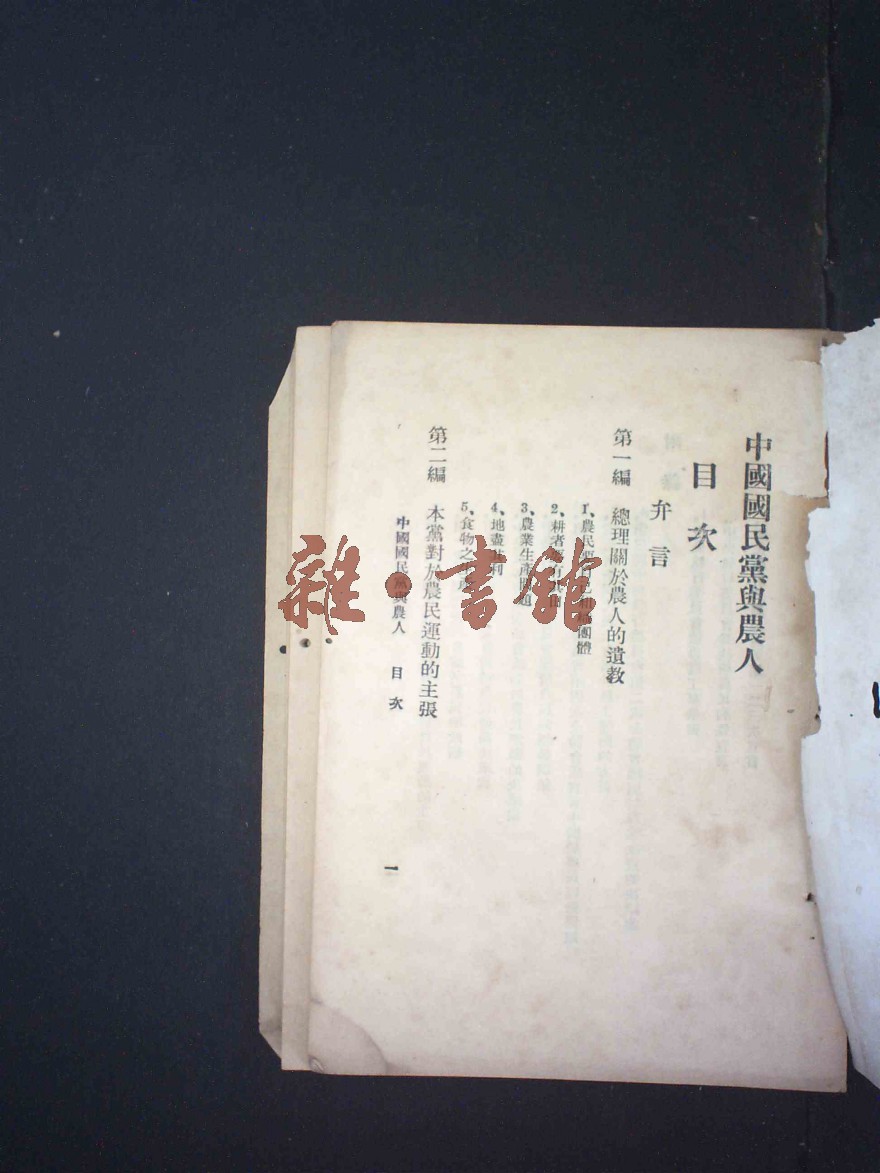 中國國民黨與農人
目次
弁言
第一編 總理關於農人的遺教
1、農民要自己組織團體
2、耕者要有其田
3、農業生產問題
4、地盡其利
5、食物之
第二編 本黨對於農民運動的主張
中國國民黨與農人 目次
一
雜·書館